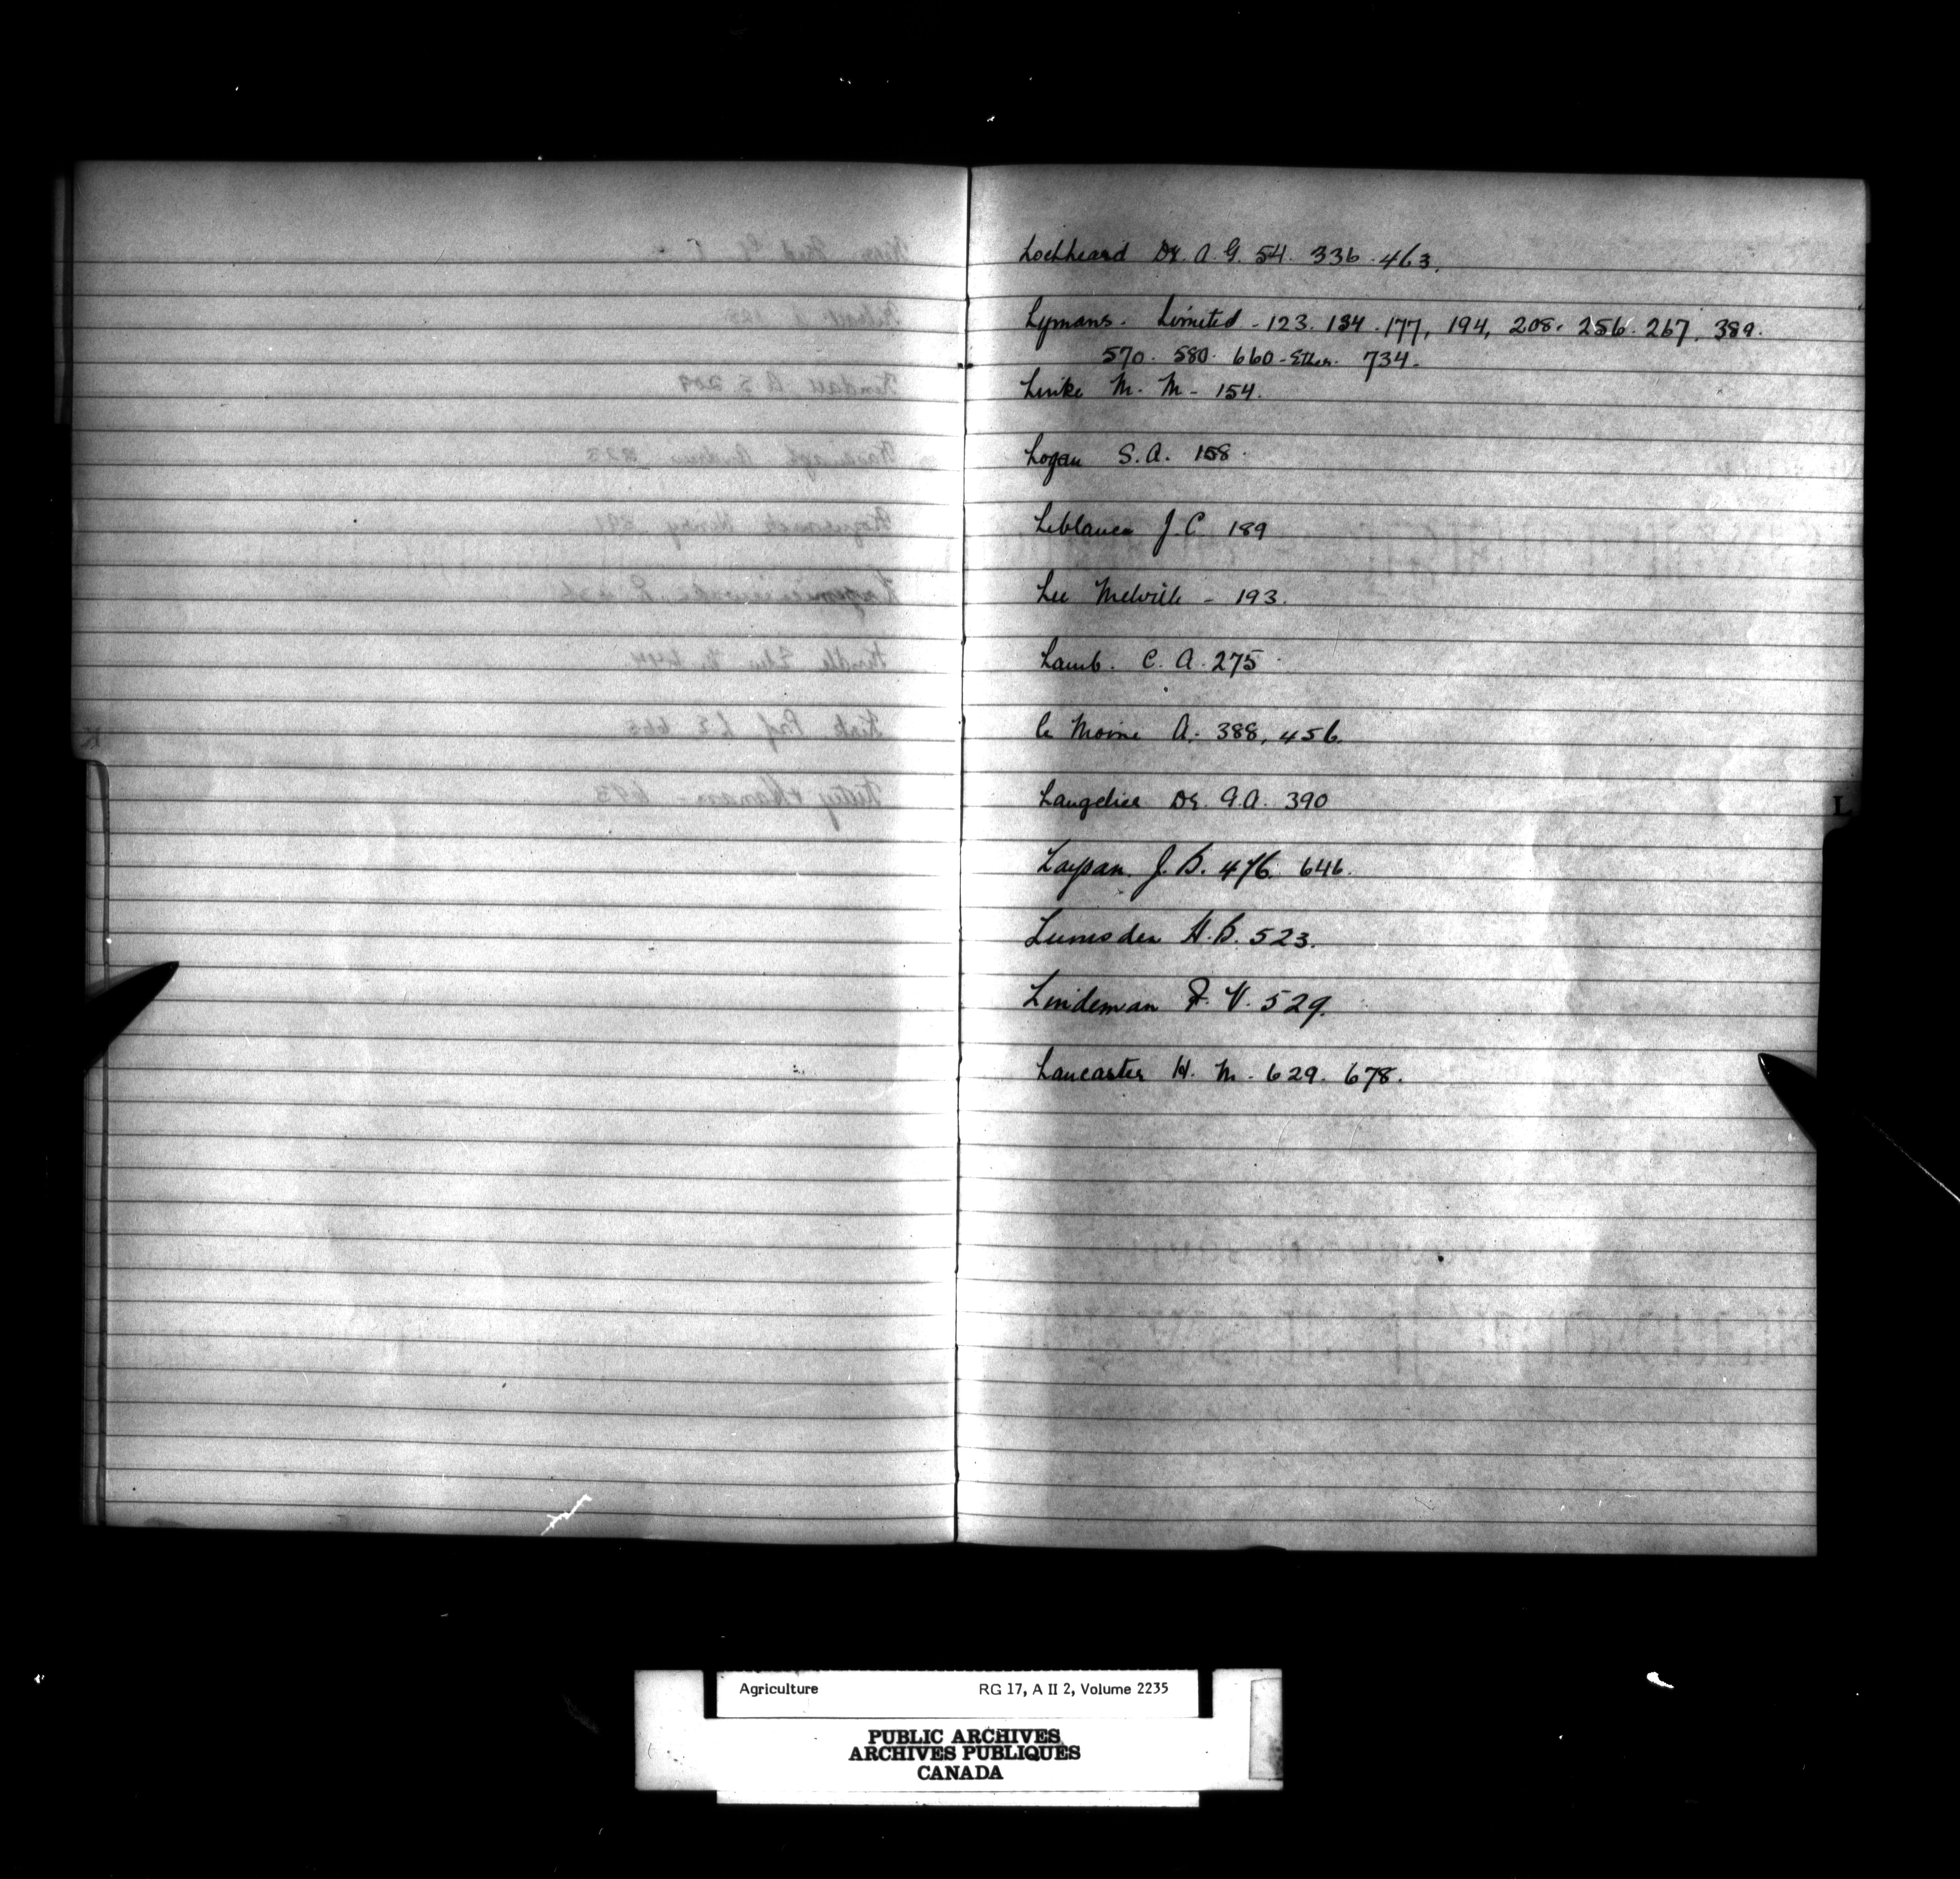 Lochheard Dr. A. G. 54. 336. 463.
Lymans. Limited - 123. 134. 177, 194, 208. 256. 267. 389.
570. 580. 660 - Ether. 734.
Linke M. M - 154.
Logan S. A. 158.
Leblance J. C. 189
Lee Melville - 193.
Lamb. C. A. 275
Le Moine A. 388, 456.
Langelier Dr. G. A. 390
L
Laypan. J. B. 476. 646.
Lumsden H. B. 523.
Lindeman F. V. 529.
Lancaster H. M. 629. 678.
Agriculture RG 17, A II 2, Volume 2235
PUBLIC ARCHIVES
ARCHIVES PUBLIQUES
CANADA